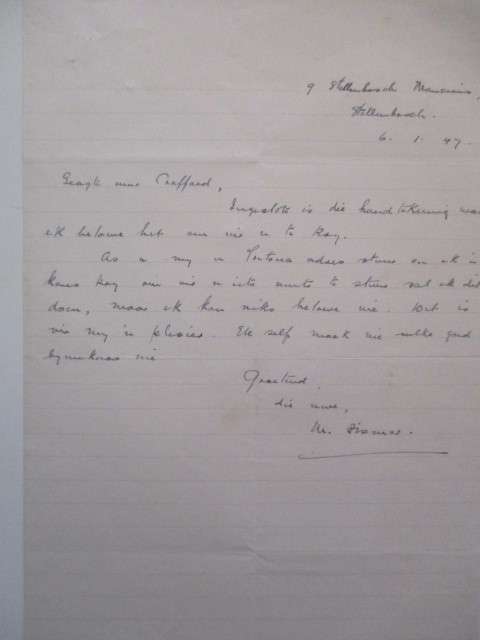 9 Stellenbosch Mansions,
Stellenbosch.
6. 1. 47.
Geagte mnr Crafford,
Ingeslote is die handtekening wat
ek belowe het om vir u te kry.
As u my u Pretoria adres stuur en ek 'n
kans kry om vir u iets te stuur sal ek dit
doen, maar ek kan niks belowe nie. Dit is
vir my 'n plesier. Ek self maak nie sulke goed
bymekaar nie
Groetend,
die uwe,